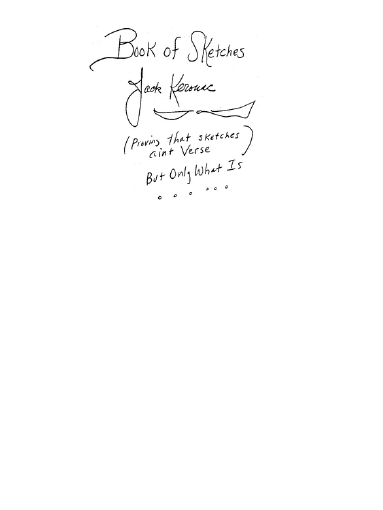 Book of Sketches
Jack Kerouac
(Proving that sketches
ain't Verse)
But Only What Is
. . . . . .